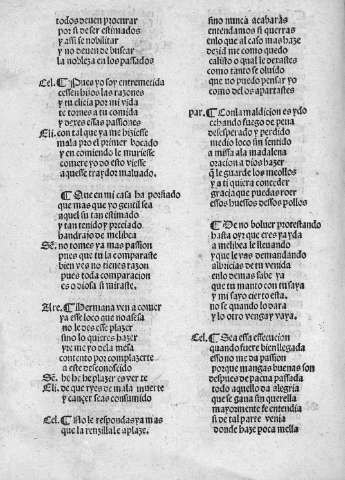 todos deuen procurar
por si de ser estimados
y assi se nobilitar
y no deuen de buscar
la nobleza en los passados
Cel. ¶ Pues yo soy entremetida
cessen hijos las razones
y tu elicia por mi vida
te tornes a tu comida
y dexes essas passiones
Eli. con tal que ya me hiziesse
mala pro el primer bocado
y en comiendo le muriesse
comere yo do esto viesse
aquesse traydor maluado.
¶ Que en mi casa ha porfiado
que mas que yo gentil sea
aquel su tan estimado
y tan tenido y preciado
handrajo de melibea
Sē. no tomes ya mas passion
pues que tu la comparaste
bien ves no tienes razon
pues toda comparacion
es odiosa si miraste.
Are. ¶ Hermana ven a comer
ya esse loco que no a
no le des esse plazer
sino lo quieres hazer
yre me yo dela mesa
contento por complazerte
a este desconoscido
Sē. he he he plazer es verte
Eli. de que ryes de mala muerte
y cancer seas consumido
Cel. ¶ No le respondas ya mas
que la renzilla le aplaze.
sino nunca acabaras
entendamos si querras
en lo que al caso mas haze
dezid me como quedo
calisto o qual le dexastes
como tanto se oluido
que no puedo pensar yo
como del os apartastes
Par. ¶ Con la maldicion es ydo
echando fuego de pena
desesperado y perdido
medio loco sin sentido
a missa ala madalena
oracion a dios hazer
q̄ le guarde los meollos
y a ti quiera conceder
gracia que puedas roer
essos huessos dessos pollos
¶ De no boluer protestando
hasta oyr que eres ya yda
a melibea lleuando
y que le vas demandando
albricias de tu venida
en lo demas sabe ya
que tu manto con tu saya
y mi sayo cierto esta.
no se quando lo dara
y lo otro venga y vaya.
Cel. ¶ Sea essa essecucion
quando fuere bien llegada
esso no me da passion
porque mangas buenas son
despues de pascua passada
todo aquello da alegria
que se gana sin querella
mayormente se entendia
si de tal parte venia
donde haze poca mella